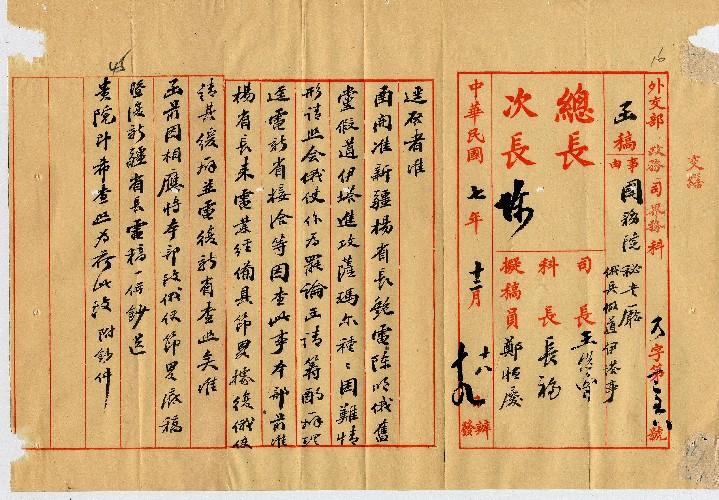 交繕
16
外交部 政務司界務科
函稿
事由 國務院秘書廳
俄兵假道伊塔事
字第 號
總長
次長 陳
司長 王
科長 長福
擬稿員 鄭恒慶
中華民國七年十二月
十八 辦
十九 發
45
逕啟者准
函開准新疆楊省長電陳明俄舊
黨假道伊塔進攻薩瑪尔種種困難情
形請照會俄使作為罷論函請籌酌辦理
逕電新省接洽等因查此事本部前准
楊省長來電業經備具節畧接復俄使
請其緩辦並電復新省查照矣准
函前因相應將本部致俄使節畧底稿
暨復新疆省長電稿一併鈔送
貴院計希查照為荷此致 附鈔件